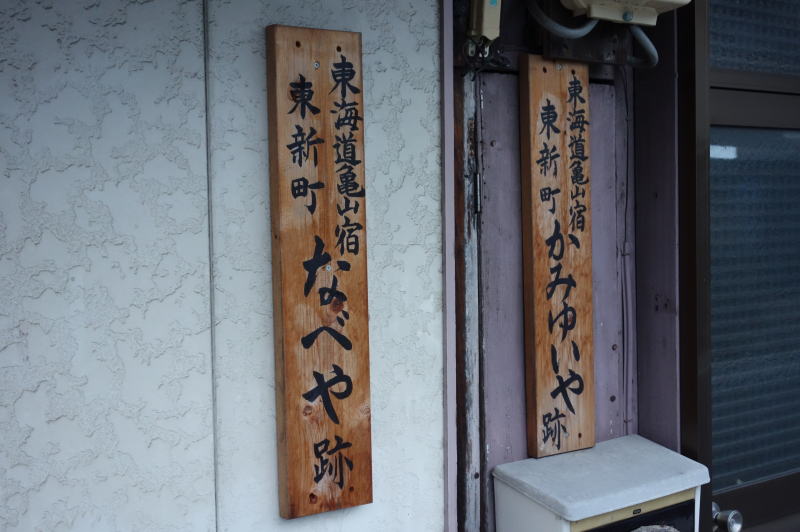 東海道亀山宿
東新町
なべや跡
東海道亀山宿
東新町
かみゆいや跡